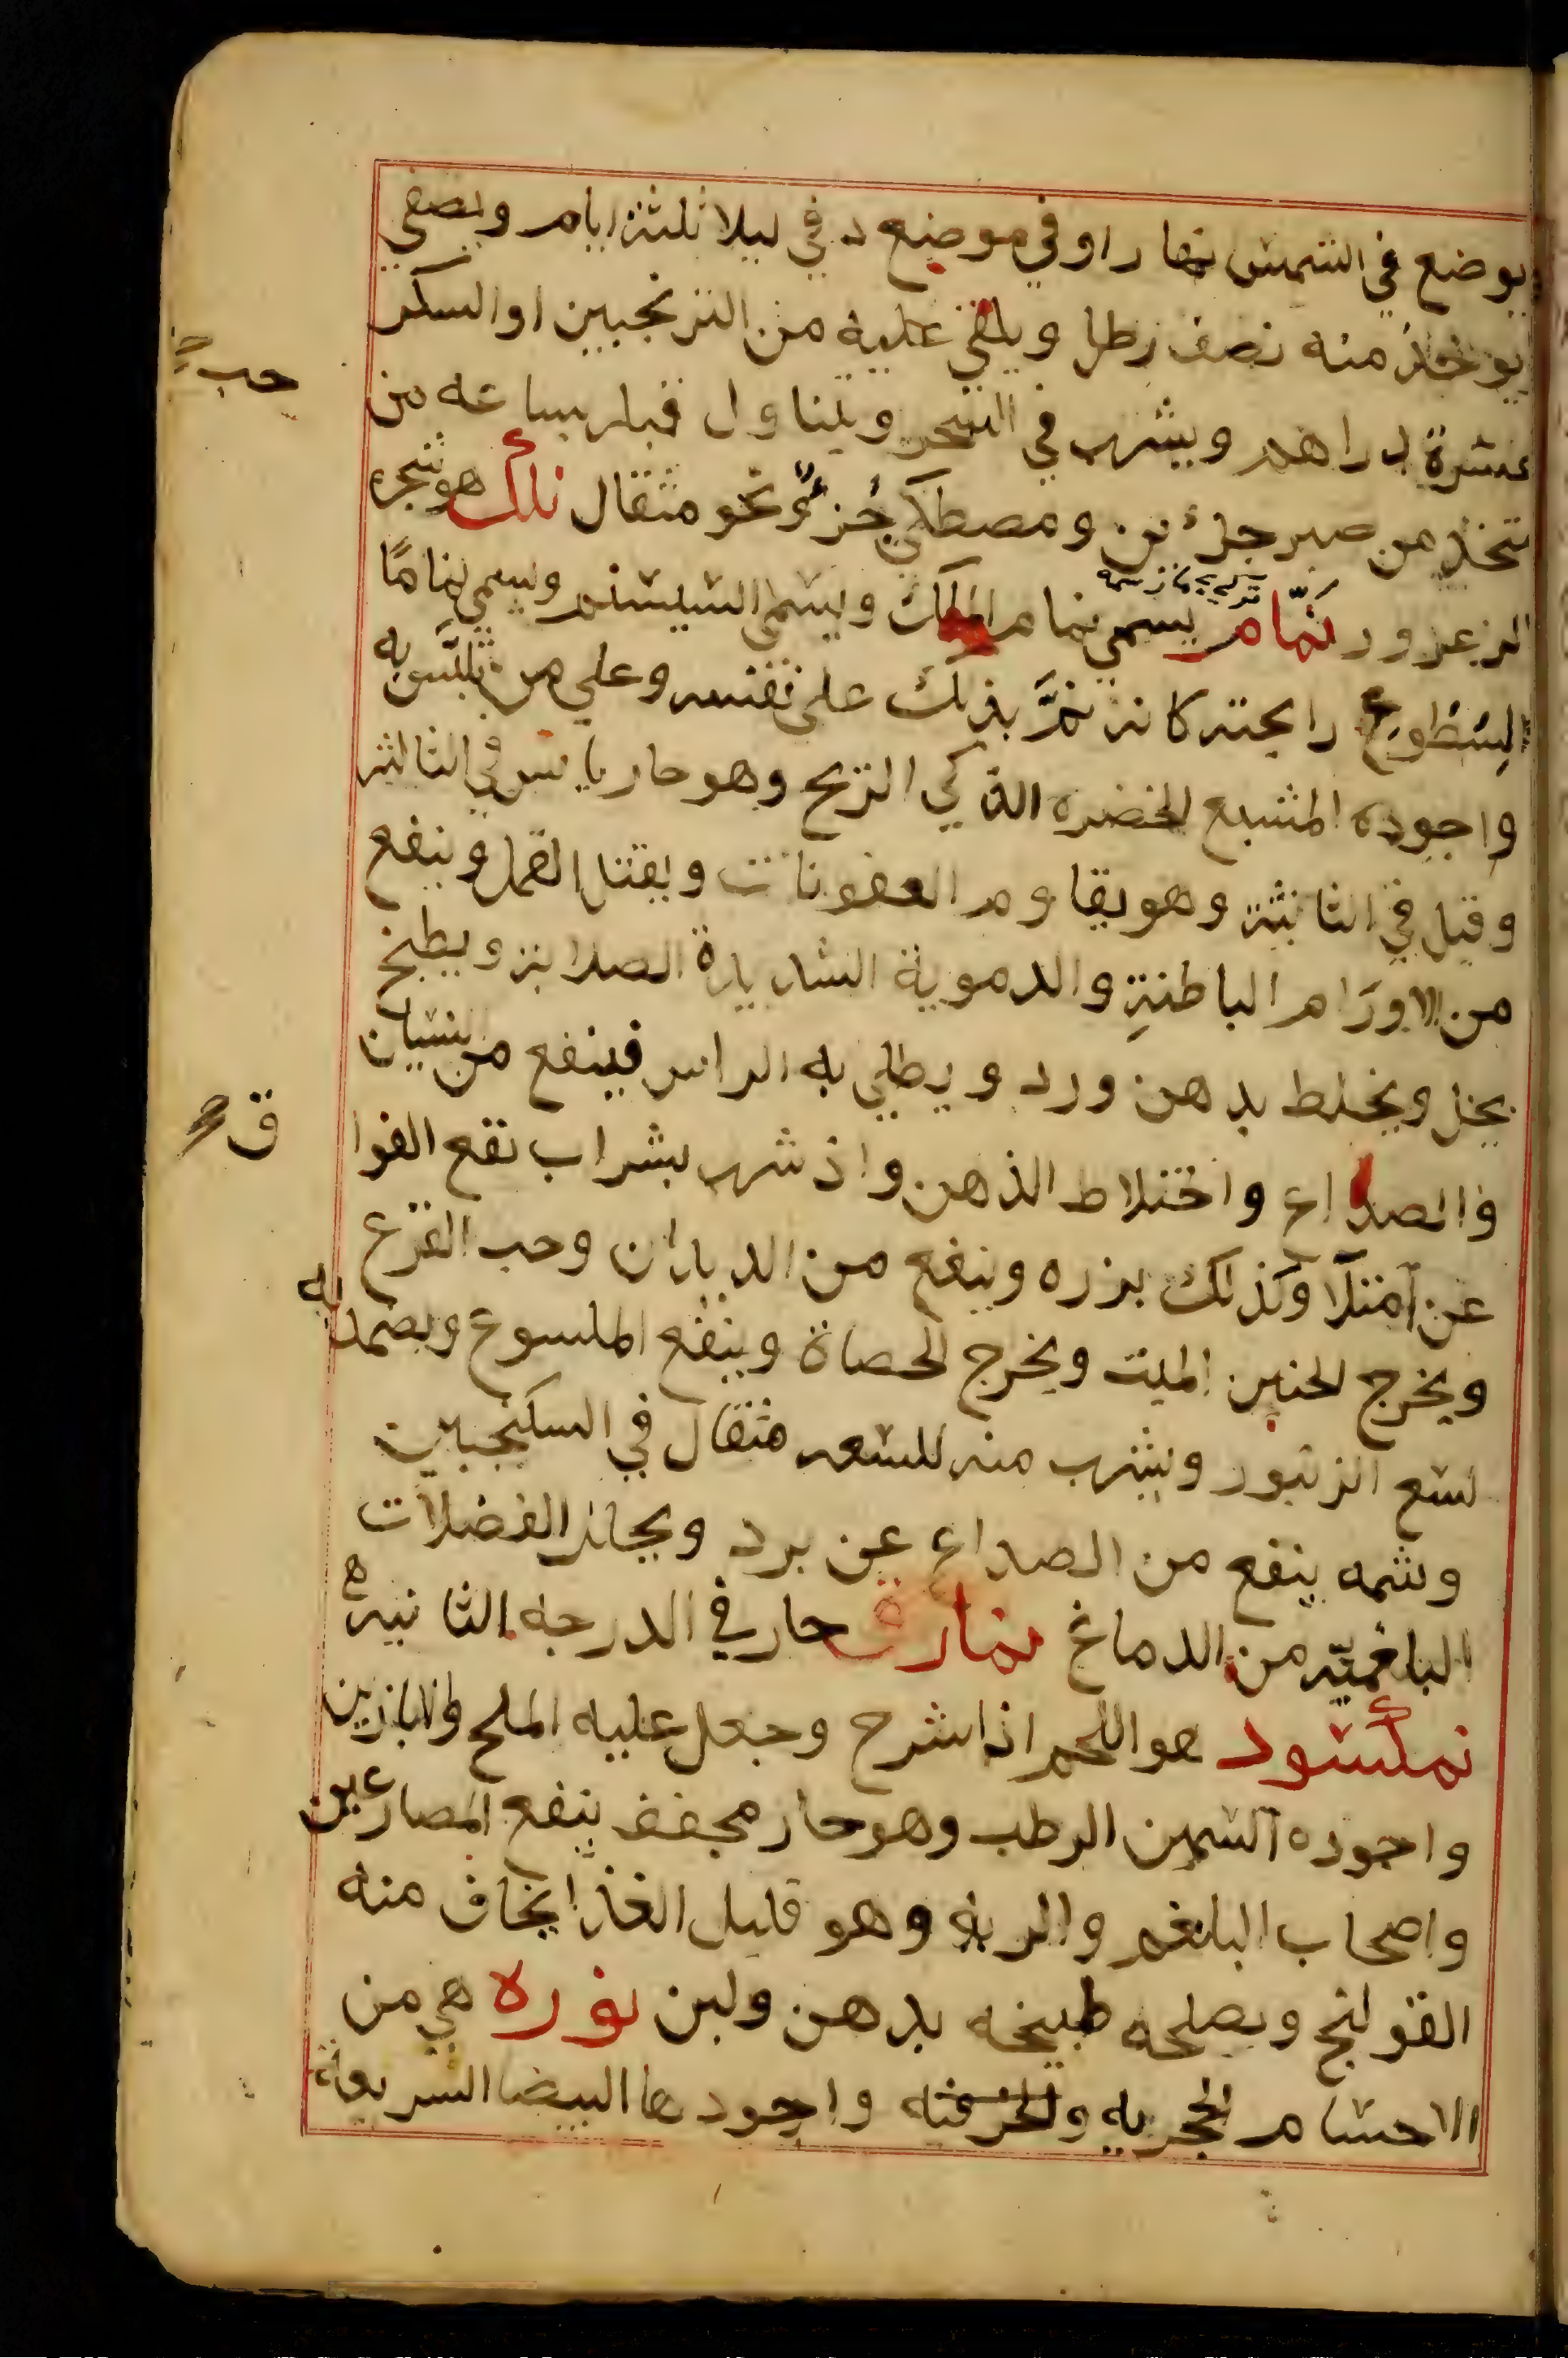 ويوضع في الشمس نهارا وفي موضع دفي ليلا ثلثة ايام ويصفي
يوخذ منه نصف رطل ويلقي عليه من الترنجبين او السكر
عشرة دراهم ويشرب في السحر ويتناول قبل بساعه من
حب
متخذ من صبر جزئين ومصطكي جزؤ نحو مثقال نلك هو شجره
الزعرور نمّام يسمي نمام الملك ويسمى السيسنبر وسمي نمامًا
لسطوع رايحته كانه نمَّ بذلك على نفسه وعلي من تلبَّس به
واجوده المشبع الخضره الذكي الريح وهو حار يابس في الثالثه
وقيل في الثانية وهو يقاوم العفونات ويقتل القمل وينفع
من الاورَام الباطنةِ والدموية الشديدة الصلابة ويطبخ
بخل ويخلط بدهن ورد ويطلي به الراس فينفع من النسيان
والصداع واختلاط الذهن واذ شرب بشراب نفع الفوا
ق
عن امتلا وكذلك بزره وينفع من الديدان وحب القرع
ويخرج الجنين الميت ويخرج الحصاة وينفع الملسوع ويضمد به
لسع الزنبور ويشرب منه للسعه مثقال في السكنجبين
وشمه ينفع من الصداع عن برد ويحلل الفضلات
البلغميّه من الدماغ نمارق حار في الدرجه الثانيه
نمكسود هو اللحم اذا شرح وجعل عليه الملح والابازين
واجوده السمين الرطب وهو حار مجفف ينفع المصارعين
واصحاب البلغم والريه وهو قليل الغذا يخاف منه
القولنج ويصلحه طبيخه بدهن ولبن نوره هي من
الاجسام الحجريه والخزفيه واجودها البيضا السريعة